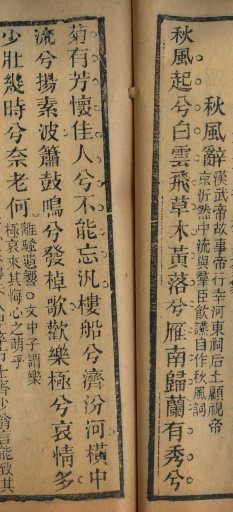 秋風辭
漢武帝故事帝行幸河東祠后土顧視帝
京忻然中流與羣臣飲讌自作秋風詞
秋風起兮白雲飛草木黃落兮雁南歸蘭有秀兮
菊有芳懷佳人兮不能忘汎樓船兮濟汾河橫中
流兮揚素波簫鼓鳴兮發棹歌歡樂極兮哀情多
少壯幾時兮奈老何
文中子謂樂
極哀來其悔心之萌乎